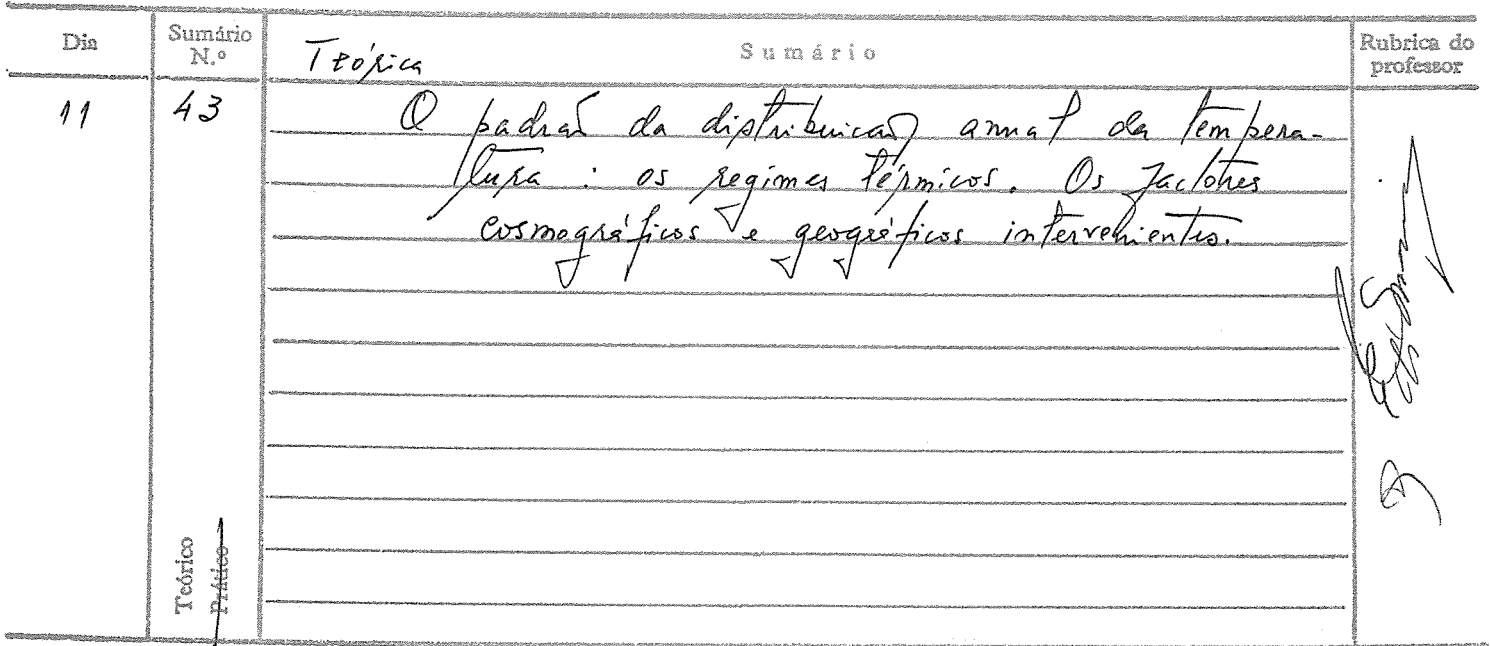 Dia
Sumário N.º
Teórica
Sumário
Rubrica do professor
11
43
O padrão da distribuição annal da tempera-
tura : os regimes térmicos. Os factores
cosmográficos e geográficos intervenientes.
Teórico
Prático